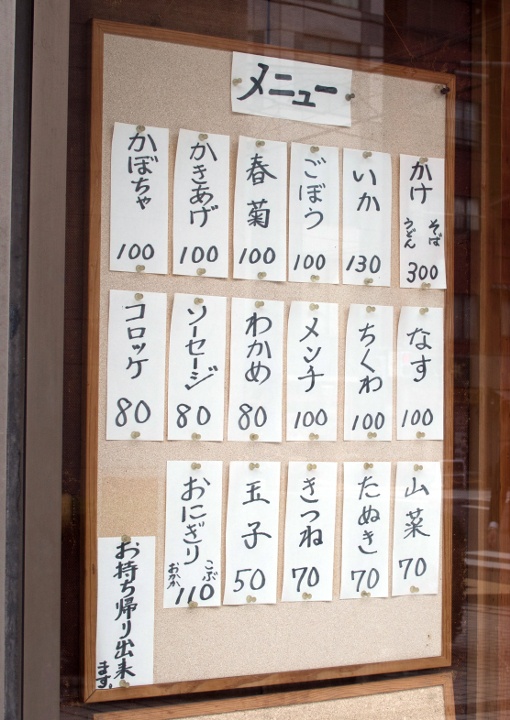 メニュー
かけ
そば
うどん
300
いか
130
ごぼう
100
春菊
100
かきあげ
100
かぼちゃ
100
なす
100
ちくわ
100
メンチ
100
わかめ
80
ソーセージ
80
コロッケ
80
山菜
70
たぬき
70
きつね
70
玉子
50
おにぎり
こぶ
おかか
110
お持ち帰り出来
ます。